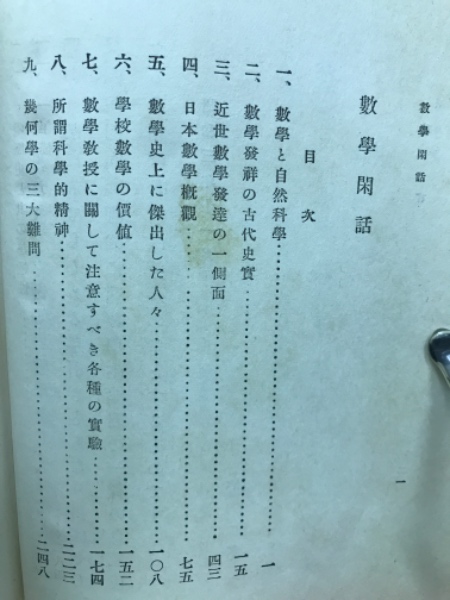 數學閑話
一
數學閑話
目次
一、數學と自然科學……一
二、數學發祥の古代史實……一五
三、近世數學發達の一側面……四三
四、日本數學概觀……七五
五、數學史上に傑出した人々……一〇八
六、學校數學の價値……一五二
七、數學敎授に關して注意すべき各種の實驗……一七四
八、所謂科學的精神……二二三
九、幾何學の三大難問……二四八